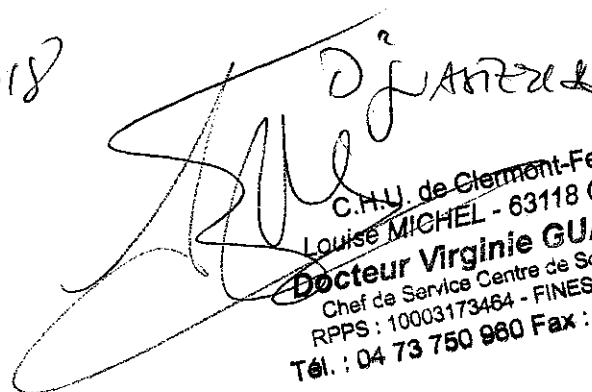 18
C.H.U. de Clermont-Fe
Louise MICHEL - 63118 C
Docteur Virginie GUA
Chef de Service Centre de So
RPPS : 10003173464 - FINES
Tél. : 04 73 750 960 Fax :